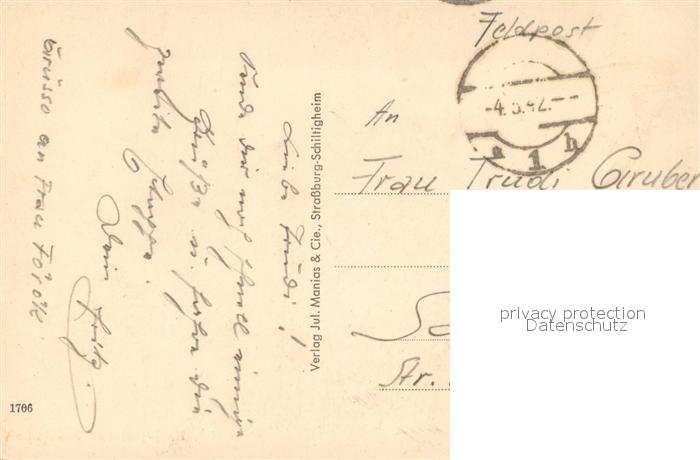 Feldpost
-4.5.42.--
a 1 h
An
Frau Trudi Gruber
Str.
Verlag Jul. Manias & Cie., Straßburg-Schiltigheim
Liebe Trudi!
Sende dir noch schnell einige
Grüße u.
Dein Fritz.
Grüsse an Frau
1706
privacy protection
Datenschutz